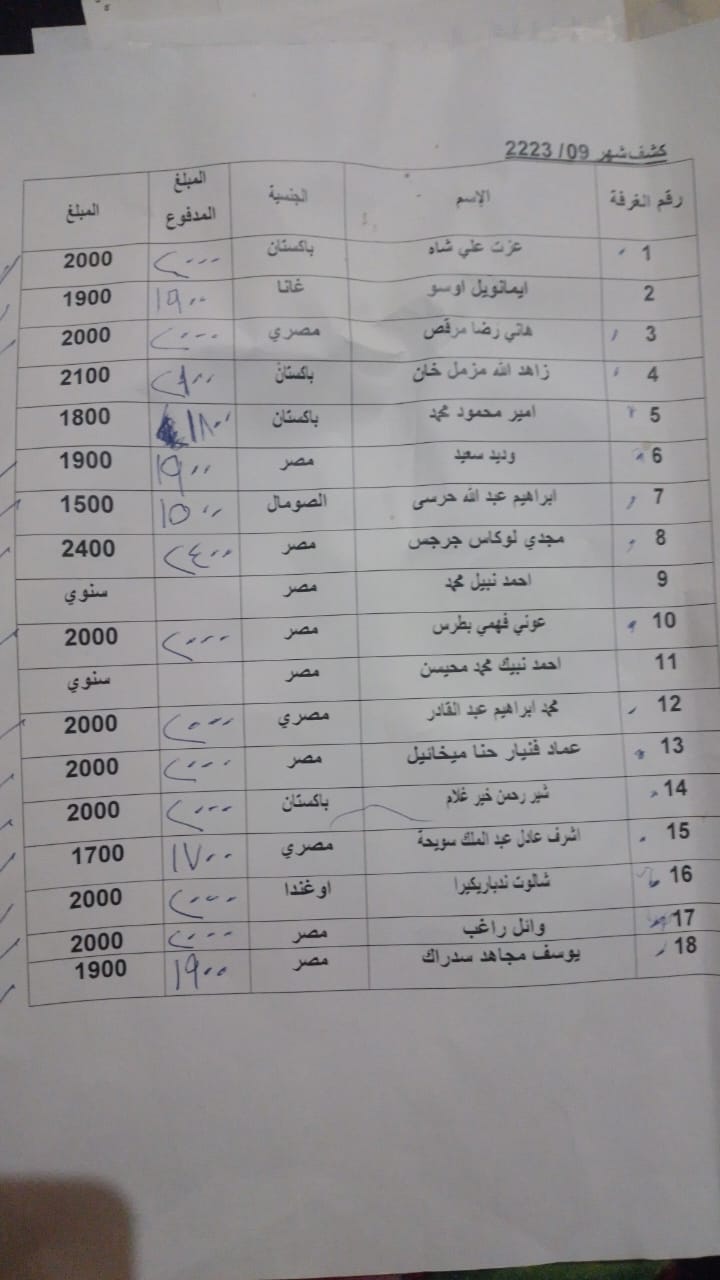 كشف شهر 09/ 2223
رقم الغرفة الإسم الجنسية المبلغ المدفوع المبلغ
1 عزت علي شاه باكستان ٢٠٠٠ 2000
2 ايمانويل اوسو غانا ١٩٠٠ 1900
3 هاني رضا مرقص مصري ٢٠٠٠ 2000
4 زاهد الله مزمل خان باكستان ٢١٠٠ 2100
5 امير محمود محمد باكستان ١٨٠٠ 1800
6 وديد سعيد مصر ١٩٠٠ 1900
7 ابراهيم عبد الله حرسى الصومال ١٥٠٠ 1500
8 مجدي لوكاس جرجس مصر ٢٤٠٠ 2400
9 احمد نبيل محمد مصر سنوي
10 عوني فهمي بطرس مصر ٢٠٠٠ 2000
11 احمد نبيك محمد محيسن مصر سنوي
12 محمد ابراهيم عبد القادر مصري ٢٠٠٠ 2000
13 عماد فنيار حنا ميخائيل مصر ٢٠٠٠ 2000
14 شير رحمن خير غلام باكستان ٢٠٠٠ 2000
15 اشرف عادل عبد الملك سويحة مصري ١٧٠٠ 1700
16 شالوت ندباريكيرا اوغندا ٢٠٠٠ 2000
17 وائل راغب مصر ٢٠٠٠ 2000
18 يوسف مجاهد سدراك مصر ١٩٠٠ 1900